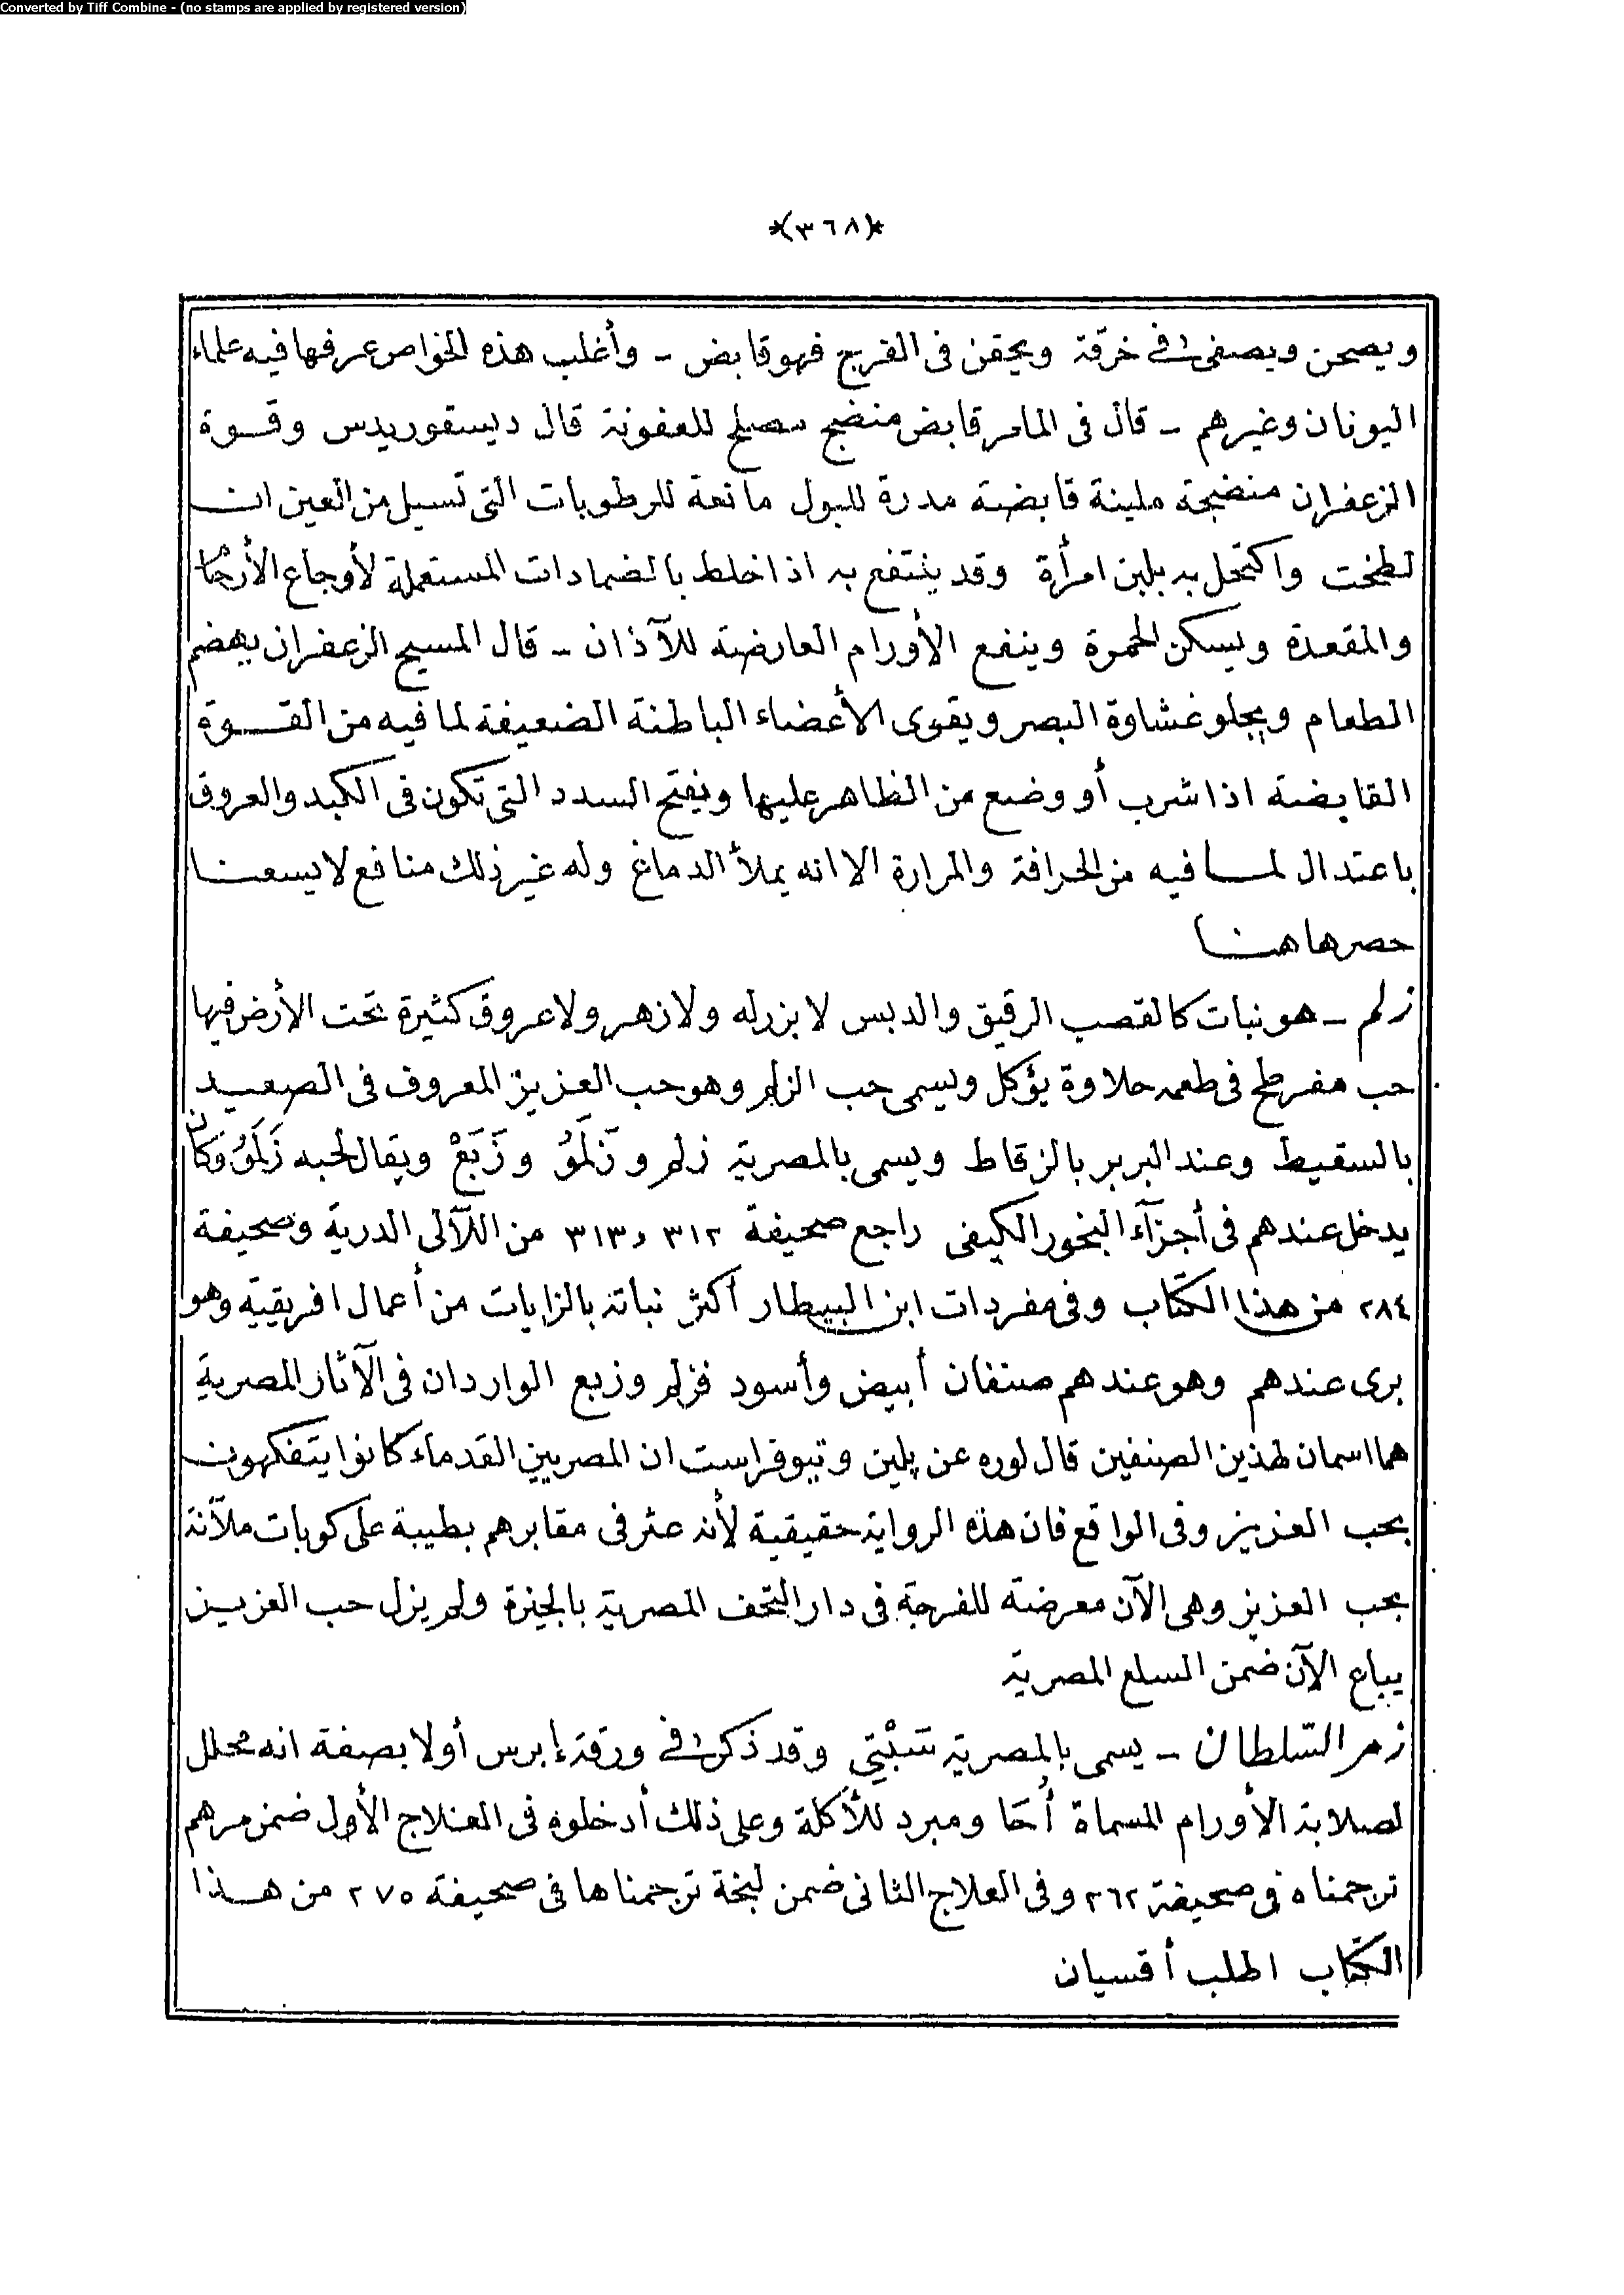 Converted by Tiff Combine - (no stamps are applied by registered version)
*(٣٦٨)*
ويصحن ويصفى فى خرقة ويحقن فى الفرج فهو قابض ــ وأغلب هذه الخواص عرفها فيه علماء
اليونان وغيرهم ــ قال فى المامر قابض منضج مصلح للعفونة قال ديسقوريدس وقــوة
الزعفران منضجة ملينة قابضة مدرة للبول مانعة للرطوبات التى تسيل من العين ان
لطخت واكتحل به بلبن امرأة وقد ينتفع به اذا خلط بالضمادات المستعملة لأوجاع الأرحام
والمقعدة ويسكن الحمرة وينفع الأورام العارضة للآذان ــ قال المسيح الزعفران يهضم
الطعام ويجلو غشاوة البصر ويقوى الأعضاء الباطنة الضعيفة لما فيه من القــوة
القابضة اذا شرب أو وضع من الظاهر عليها ويفتح السدد التى تكون فى الكبد والعروق
باعتدال لمــا فيه من الحرافة والمرارة الا انه يملأ الدماغ وله غير ذلك منافع لا يسعنــا
حصرها هنــا
زلم ــ هو نبات كالقصب الرقيق والدبس لا بزر له ولا زهر ولا عروق كثيرة تحت الأرض فيها
حب مفرطح فى طعمه حلاوة يؤكل ويسمى حب الزلم وهو حب العزيز المعروف فى الصعيــد
بالسقيط وعند البربر بالزقاط ويسمى بالمصرية زلم و زَلَمُو و زَبَعْ ويقال لحبه زَلَمُو وكان
يدخل عندهم فى أجزآء البخور الكيفى راجع صحيفة ٣١٢ و٣١٣ من اللآلى الدرية وصحيفة
٢٨٤ من هذا الكتاب وفى مفردات ابن البيطار أكثر نباته بالزابات من أعمال افريقية وهو
برى عندهم وهو عندهم صنفان أبيض وأسود فزلم وزبع الواردان فى الآثار المصرية
هما اسمان لهذين الصنفين قال لوره عن پلين وتيوفراست ان المصريين القدماء كانوا يتفكهون
بحب العزيز وفى الواقع فان هذه الرواية حقيقية لأنه عثر فى مقابرهم بطيبة على كوبات ملآنة
بحب العزيز وهى الآن معرضة للفرجة فى دار التحف المصرية بالجيزة ولم يزل حب العزيــز
يباع الآن ضمن السلع المصرية
زمر السّلطان ــ يسمى بالمصرية شَبْتِي وقد ذكر فى ورقة إبرس أولا بصفة انه محلل
لصلابة الأورام المسماة أُحَا ومبرد للأكلة وعلى ذلك أدخلوه فى العلاج الأول ضمن مرهم
ترجمناه فى صحيفة ٢٦٢ وفى العلاج الثانى ضمن لبخة ترجمناها فى صحيفة ٢٧٥ من هــذا
الكتاب اطلب أقسيان